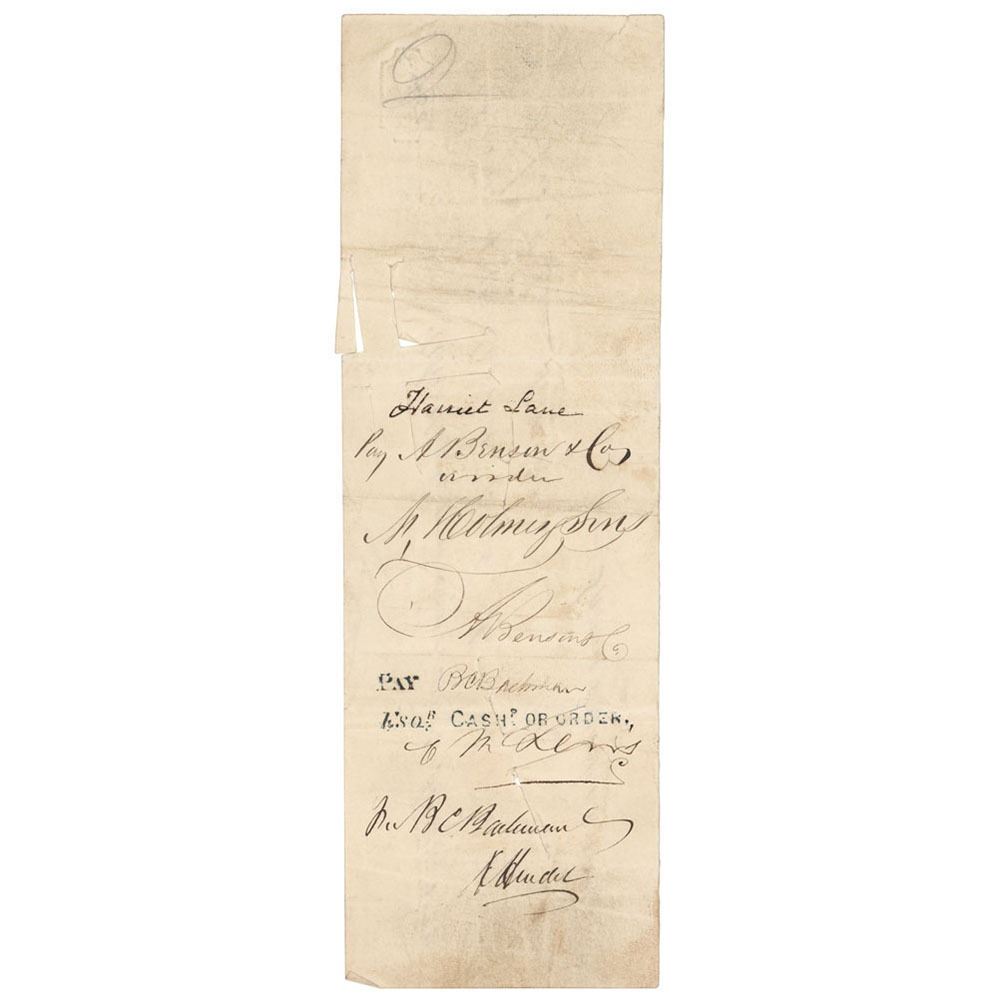 Harriet Lane
Pay A Benson & Co
or order
M, Holmes, Sons
A Benson & Co
PAY B C Bachman
ESQR CASHR OR ORDER,
C M Lewis
B C Bachman